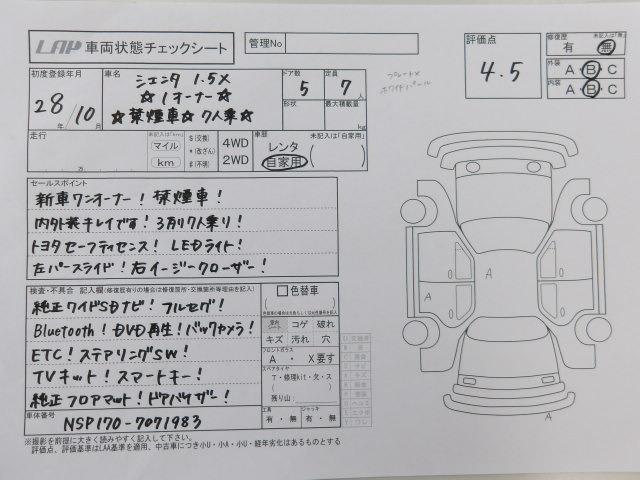 LAP 車両状態チェックシート
管理No
評価点
4.5
修復歴 未記入は「無」
有 無
外装 A・B・C
内装 A・B・C
初度登録年月
28年/10月
車名
シエンタ 1.5X
☆1オーナー☆
☆禁煙車☆ 7人乗☆
ドア数
5
定員
7人
形状
最大積載量
kg
プレートX
ホワイトパール
走行
万
未記入は「km」
マイル
km
$(交換)
*(改ざん)
#(不明)
4WD
2WD
車歴 未記入は「自家用」
レンタ
自家用
セールスポイント
新車ワンオーナー！禁煙車！
内外装キレイです！3列7人乗り！
トヨタセーフティセンス！LEDライト！
左パースライド！右イージークローザー！
検査・不具合 記入欄(修復歴有りの場合は修復箇所・交換箇所等理由を記入)
純正ワイドSDナビ！フルセグ！
Bluetooth！DVD再生！バックカメラ！
ETC！ステアリングSW！
TVキット！スマートキー！
純正フロアマット！ドアバイザー！
色替車
室内シート コゲ 破れ
キズ 汚れ 穴
フロントガラス
A ・ X要す
スペアタイヤ
T・修理kit・欠・ス
残り山:
工具
有・無
ジャッキ
有・無
車体番号
NSP170-7071983
A
A
A
※撮影を前提に大きく読みやすく記入して下さい。
評価点、評価基準はLAA基準を適用、中古車につき小U・小A・小U・経年劣化はあるものとする